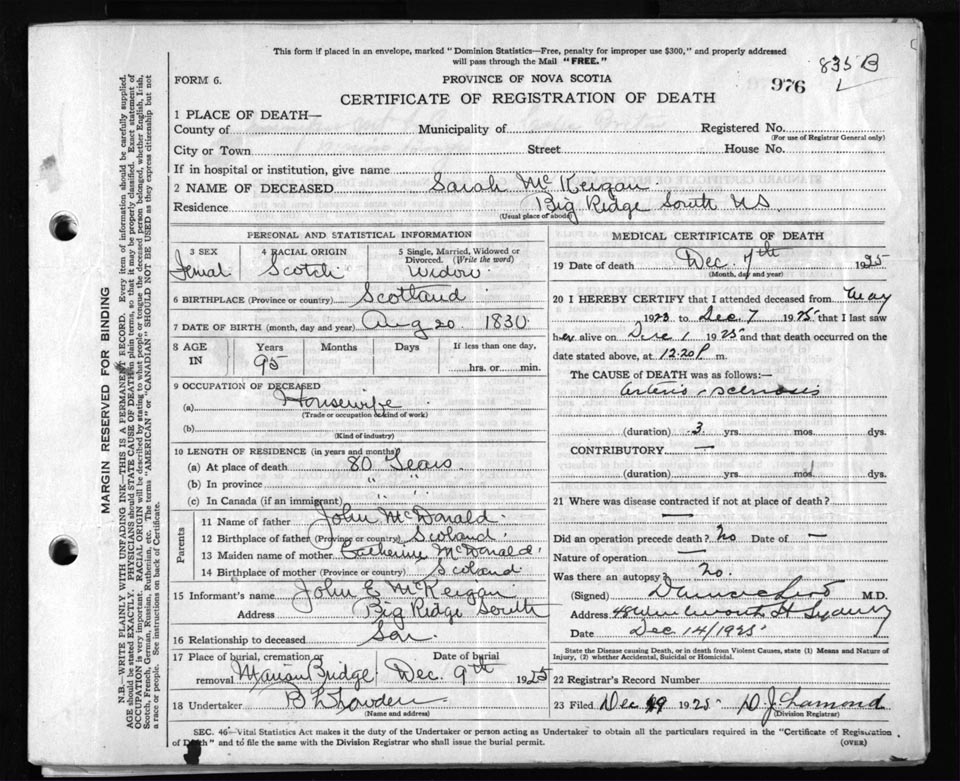 This form if placed in an envelope, marked "Dominion Statistics—Free, penalty for improper use $300," and properly addressed
will pass through the Mail "FREE."
835 B
FORM 6.
PROVINCE OF NOVA SCOTIA
976
CERTIFICATE OF REGISTRATION OF DEATH
1 PLACE OF DEATH—
County of
Municipality of
Registered No.
(For use of Registrar General only)
City or Town
Street
House No.
If in hospital or institution, give name
2 NAME OF DECEASED Sarah McKeigan
Residence Big Ridge South NS
(Usual place of abode)
PERSONAL AND STATISTICAL INFORMATION
3 SEX
4 RACIAL ORIGIN
5 Single, Married, Widowed or
Divorced. (Write the word)
Femal Scotch Widow
6 BIRTHPLACE (Province or country) Scotland
7 DATE OF BIRTH (month, day and year) Aug 20 1830
8 AGE IN
Years
Months
Days
If less than one day,
95
hrs. or min.
9 OCCUPATION OF DECEASED
(a) Housewife
(Trade or occupation or kind of work)
(b)
(Kind of industry)
10 LENGTH OF RESIDENCE (in years and months)
(a) At place of death 80 Years
(b) In province " "
(c) In Canada (if an immigrant) " "
Parents
11 Name of father John McDonald
12 Birthplace of father (Province or country) Scoland
13 Maiden name of mother Catherine McDonald
14 Birthplace of mother (Province or country) Scoland
15 Informant's name John E McKeigan
Address Big Ridge South
16 Relationship to deceased Son
17 Place of burial, cremation or
removal Marion Bridge
Date of burial
Dec. 9th 1925
18 Undertaker
(Name and address)
MEDICAL CERTIFICATE OF DEATH
19 Date of death Dec. 7th 1925
(Month, day and year)
20 I HEREBY CERTIFY that I attended deceased from May
1923 to Dec 7 1925 that I last saw
her alive on Dec 1 1925 and that death occurred on the
date stated above, at 12.20 P m.
The CAUSE of DEATH was as follows:—
Arterio sclerosis
(duration) 3 yrs. mos. dys.
CONTRIBUTORY —
(duration) yrs. mos. dys.
21 Where was disease contracted if not at place of death?
—
Did an operation precede death? No Date of —
Nature of operation —
Was there an autopsy? No.
(Signed) M.D.
Address St Sydney
Date Dec 14/1925
State the Disease causing Death, or in death from Violent Causes, state (1) Means and Nature of
Injury, (2) whether Accidental, Suicidal or Homicidal.
22 Registrar's Record Number
23 Filed Dec 19 1925 D. J. Lamond
(Division Registrar)
SEC. 46—Vital Statistics Act makes it the duty of the Undertaker or person acting as Undertaker to obtain all the particulars required in the "Certificate of Registration
of Death" and to file the same with the Division Registrar who shall issue the burial permit.
(OVER)
MARGIN RESERVED FOR BINDING
N.B.—WRITE PLAINLY WITH UNFADING INK—THIS IS A PERMANENT RECORD. Every item of information should be carefully supplied.
AGE should be stated EXACTLY. PHYSICIANS should STATE CAUSE OF DEATH in plain terms, so that it may be properly classified. Exact statement of
OCCUPATION is very important. RACIAL ORIGIN will be described by stating to what people or tongue the deceased person belonged, whether English, Irish,
Scotch, French, German, Russian, Ruthenian, etc. The terms "AMERICAN" or "CANADIAN" SHOULD NOT BE USED as they express citizenship but not
a race or people. See instructions on back of Certificate.